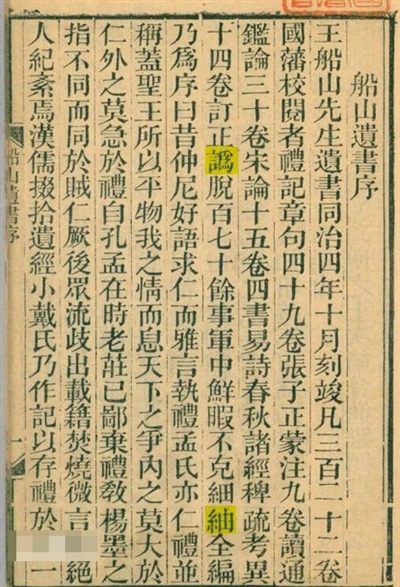 船山遺書序
王船山先生遺書同治四年十月刻竣凡三百二十二卷
國藩校閱者禮記章句四十九卷張子正蒙注九卷讀通
鑑論三十卷宋論十五卷四書易詩春秋諸經稗疏考異
十四卷訂正譌脫百七十餘事軍中鮮暇不克細紬全編
乃爲序曰昔仲尼好語求仁而雅言執禮孟氏亦仁禮並
稱蓋聖王所以平物我之情而息天下之爭內之莫大於
仁外之莫急於禮自孔孟在時老莊已鄙棄禮教楊墨之
指不同而同於賊仁厥後眾流歧出載籍焚燒微言絕
人紀紊焉漢儒掇拾遺經小戴氏乃作記以存禮於一
船山遺書序
一